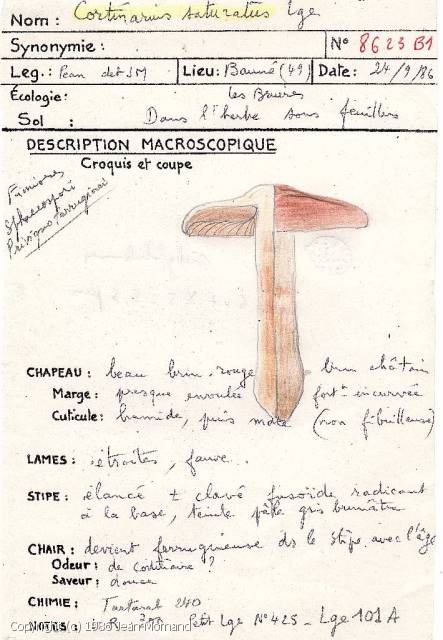 Nom : Cortinarius saturatus Lge
Synonymie : N° 8623 B1
Leg. : Péan det JM Lieu: Bauné (49) Date: 24/9/86
Écologie: les Bruères
Sol : Dans l'herbe sous feuillus
DESCRIPTION MACROSCOPIQUE
Croquis et coupe
CHAPEAU : beau brun-rouge brun châtain
Marge : presque enroulée fort^t incurvée
Cuticule: humide, puis mate (non fibrilleuse)
LAMES : étroites, fauve..
STIPE : élancé ± clavé fusoïde, radicant
à la base, teinte pâle gris brunâtre
CHAIR : devient ferrugineuse ds le stipe avec l'âge
Odeur: de cortinaire ?
Saveur: douce
CHIMIE :
NOTES : Petit Lge N° 425 - Lge 101 A
Copyright (c) 1986 Jean Mornand